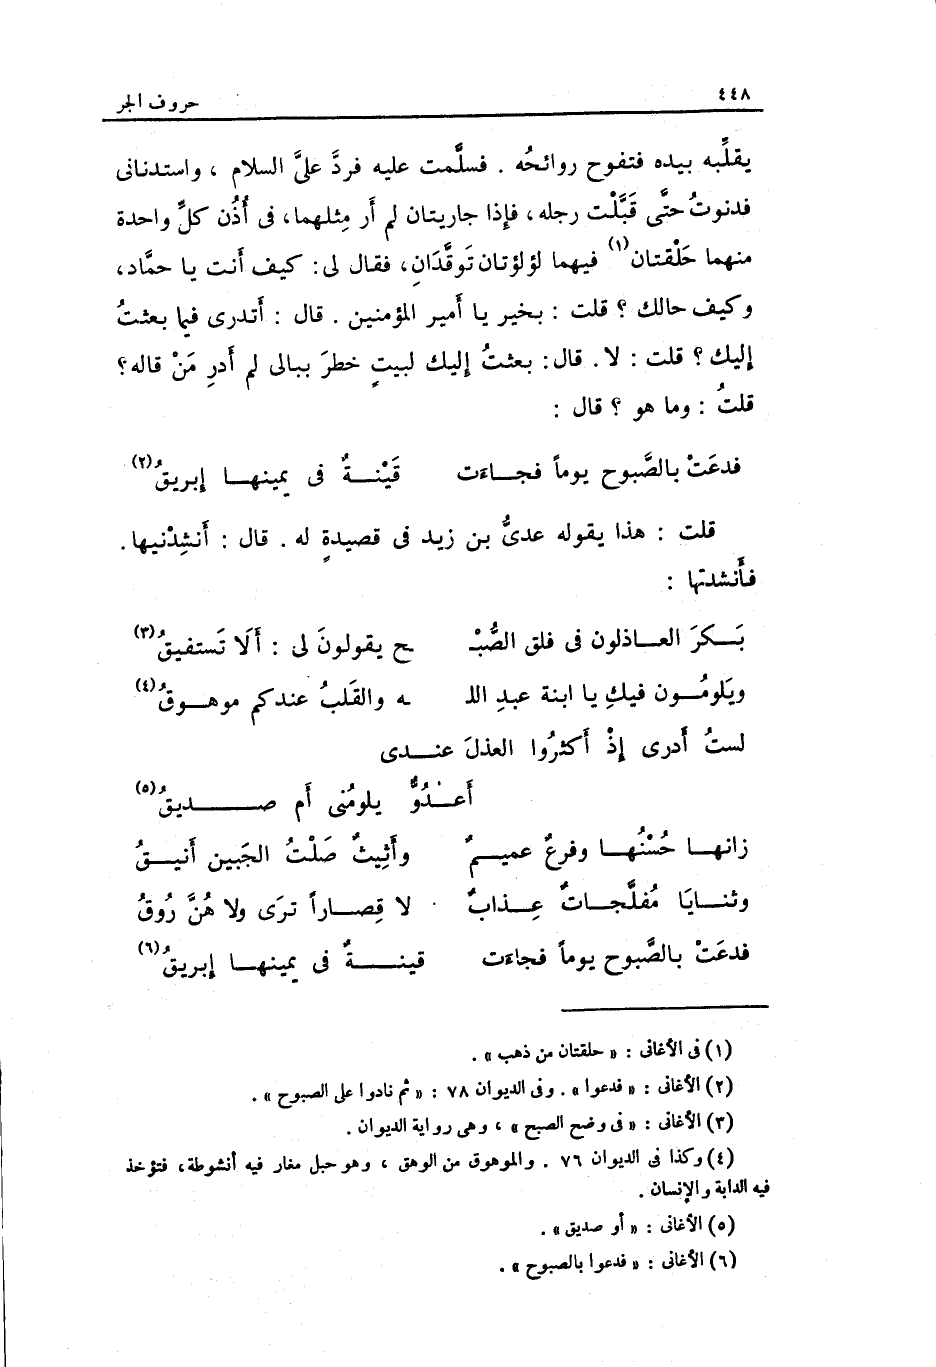 ٤٤٨
حروف الجر
يقلِّبه بيده فتفوح روائحُه . فسلَّمت عليه فردَّ علىَّ السلام ، واستدنانى
فدنوتُ حتَّى قَبَّلْت رجله، فإذا جاريتان لم أر مِثلهما، فى أُذُن كلِّ واحدة
منهما حَلْقتان(١) فيهما لؤلؤتان تَوقَّدَانِ، فقال لى: كيف أنت يا حمَّاد،
وكيف حالك ؟ قلت : بخير يا أمير المؤمنين . قال : أتدرى فيما بعثتُ
إليك ؟ قلت : لا. قال: بعثتُ إليك لبيتٍ خطرَ ببالى لم أدرِ مَنْ قاله؟
قلتُ : وما هو ؟ قال :
فدعَتْ بالصَّبوح يوماً فجاءت قَيْنةٌ فى يمينها إبريقُ(٢)
قلت : هذا يقوله عدىُّ بن زيد فى قصيدةٍ له . قال : أنشِدْنيها.
فأنشدتها :
بَكرَ العاذلون فى فلق الصُّبْـ ـح يقولونَ لى : أَلَا تَستفيقُ(٣)
ويَلومُون فيكِ يا ابنة عبدِ اللـ ـه والقَلبُ عندكم موهوقُ(٤)
لستُ أدرى إذْ أكثرُوا العذلَ عندى
أَعدُوٌّ يلومُنى أم صديقُ(٥)
زانها حُسْنُها وفرعٌ عميمٌ وأَثِيثٌ صَلْتُ الجَبين أنيقُ
وثنايَا مُفلَّجاتٌ عِذابٌ لا قِصاراً ترَى ولا هُنَّ رُوقُ
فدعَتْ بالصَّبوح يوماً فجاءت قينةٌ فى يمينها إبريقُ(٦)
(١) فى الأغانى : « حلقتان من ذهب » .
(٢) الأغانى : « فدعوا » . وفى الديوان ٧٨ : « ثم نادوا على الصبوح » .
(٣) الأغانى : « فى وضح الصبح » ، وهى رواية الديوان .
(٤) وكذا فى الديوان ٧٦ . والموهوق من الوهق ، وهو حبل مغار فيه أنشوطة، فتؤخذ
فيه الدابة والإنسان .
(٥) الأغانى : « أو صديق » .
(٦) الأغانى : « فدعوا بالصبوح » .